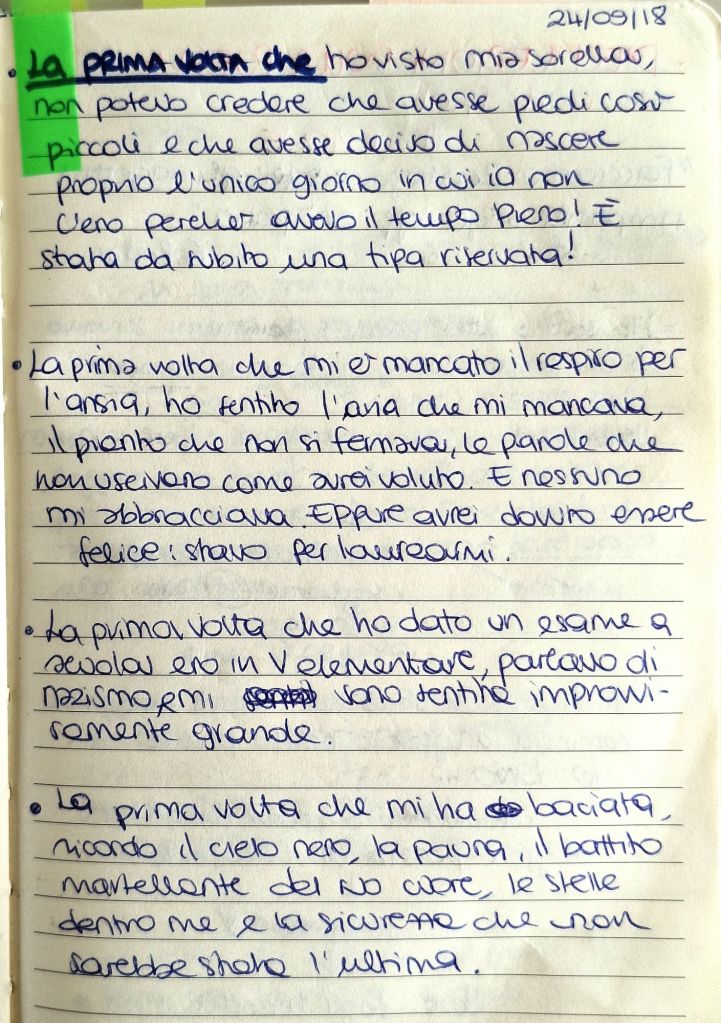 24/09/18
• La PRIMA VOLTA che ho visto mia sorella,
non potevo credere che avesse piedi così
piccoli e che avesse deciso di nascere
proprio l'unico giorno in cui io non
c'ero perché avevo il tempo pieno! È
stata da subito una tipa riservata!
• La prima volta che mi è mancato il respiro per
l'ansia, ho sentito l'aria che mi mancava,
il pianto che non si fermava, le parole che
non uscivano come avrei voluto. E nessuno
mi abbracciava. Eppure avrei dovuto essere
felice: stavo per laurearmi.
• La prima volta che ho dato un esame a
scuola ero in V elementare, parlavo di
nazismo e mi sono sentita improvvi-
samente grande.
• La prima volta che mi ha baciata,
ricordo il cielo nero, la paura, il battito
martellante del suo cuore, le stelle
dentro me e la sicurezza che non
sarebbe stata l'ultima.